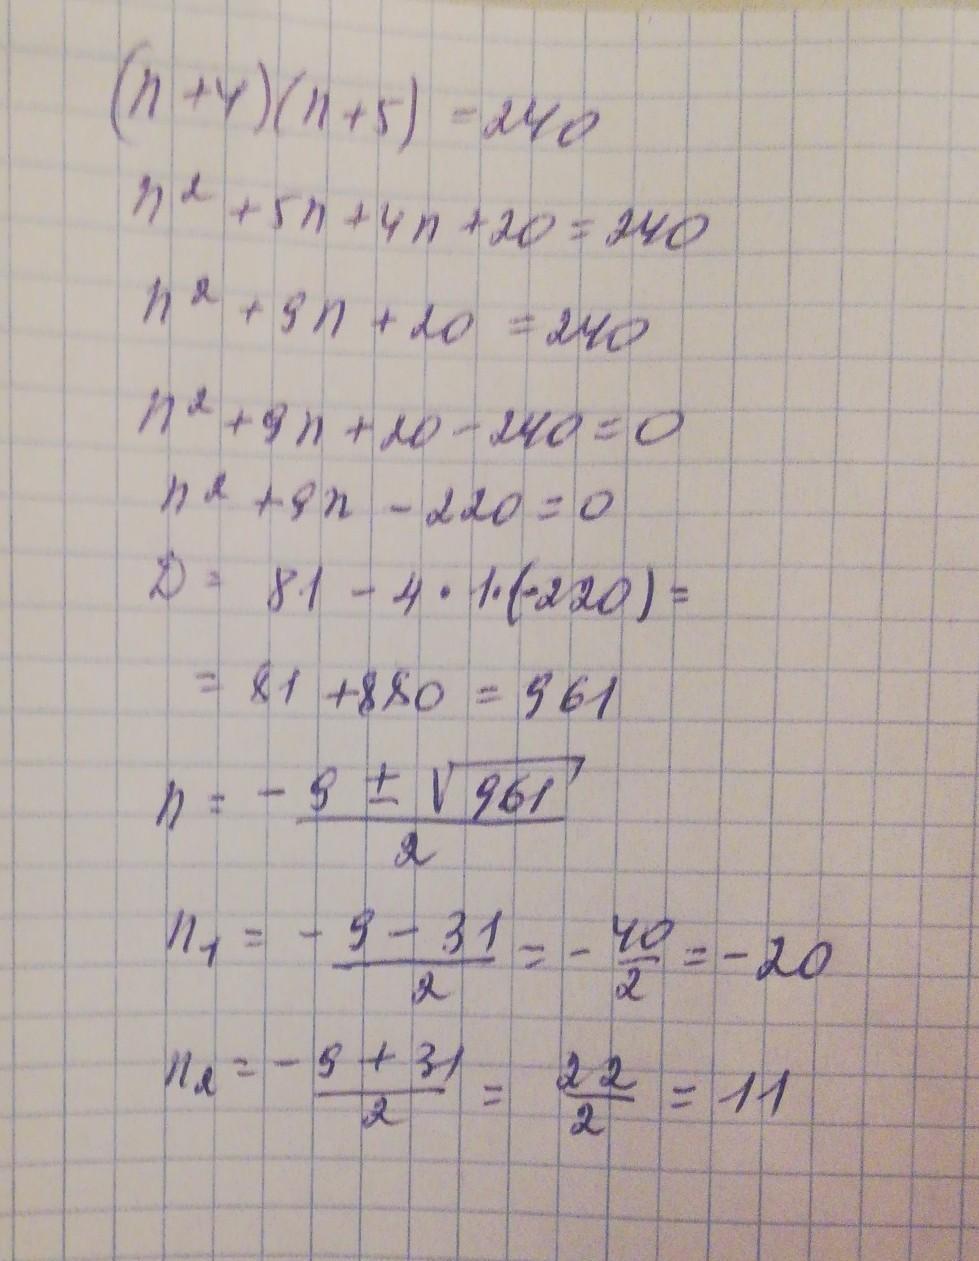 (n+4)(n+5) = 240
n² + 5n + 4n + 20 = 240
n² + 9n + 20 = 240
n² + 9n + 20 - 240 = 0
n² + 9n - 220 = 0
D = 81 - 4 · 1 · (-220) =
= 81 + 880 = 961
n = -9 ± √961 / 2
n₁ = -9 - 31 / 2 = -40/2 = -20
n₂ = -9 + 31 / 2 = 22/2 = 11